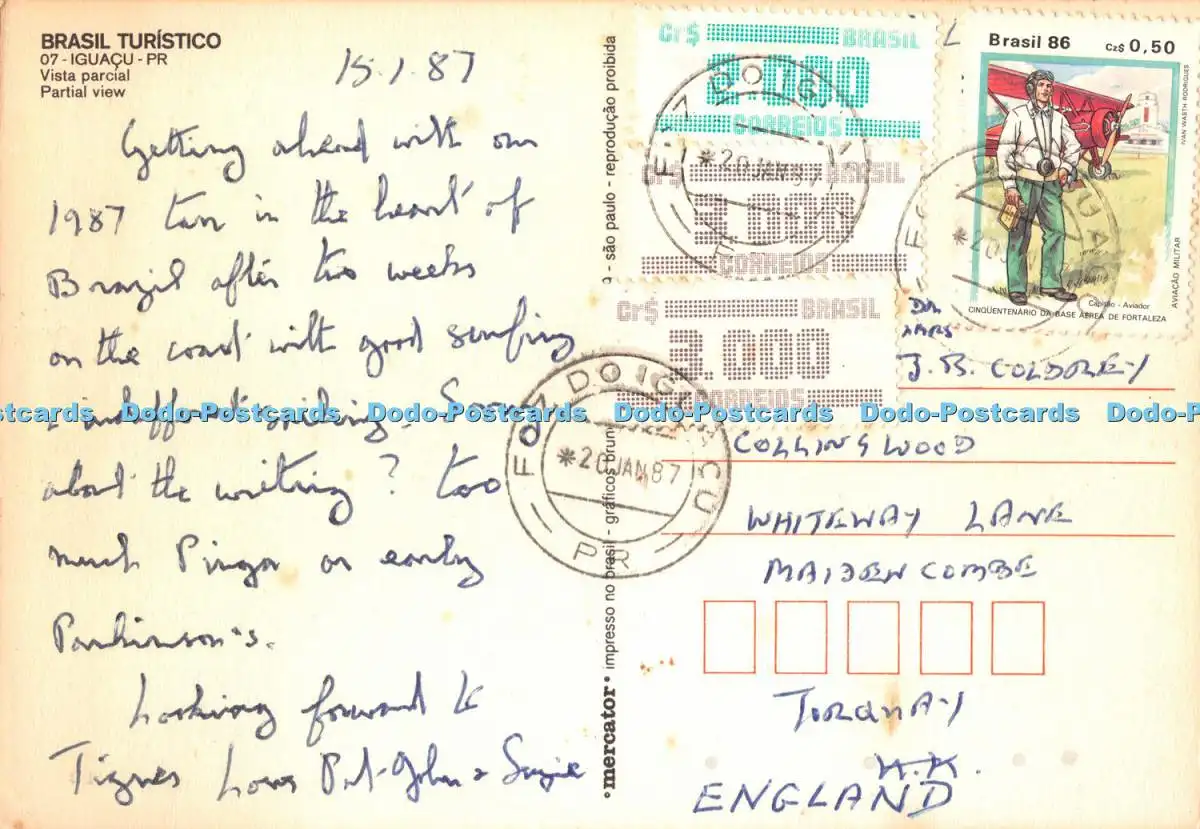 BRASIL TURÍSTICO
07 - IGUAÇU - PR
Vista parcial
Partial view
15.1.87
Getting ahead with our
1987 tan in the heart of
Brazil after two weeks
on the coast with good surfing
& indifferent sailing. Sorry
about the writing? Too
much Pinga or early
Parkinson's.
Looking forward to
Tignes Love Pat John & Suzie
•mercator• impresso no brasil - gráficos bruni
são paulo - reprodução proibida
Cr$ BRASIL
CORREIOS
Cr$ BRASIL
3.000
CORREIOS
Cr$ BRASIL
3.000
CORREIOS
Brasil 86 Cz$ 0,50
IVAN WASTH RODRIGUES
AVIAÇÃO MILITAR
Capitão - Aviador
CINQÜENTENÁRIO DA BASE AÉREA DE FORTALEZA
FOZ DO IGUAÇU
*20 JAN 87
PR
*20 JAN 87
*20 JAN 87
J. B. COLDREY
COLLINGWOOD
WHITEWAY LANE
MAIDENCOMBE
TORQUAY
U.K.
ENGLAND
Dodo-Postcards Dodo-Postcards Dodo-Postcards Dodo-Postcards Dodo-Postcards